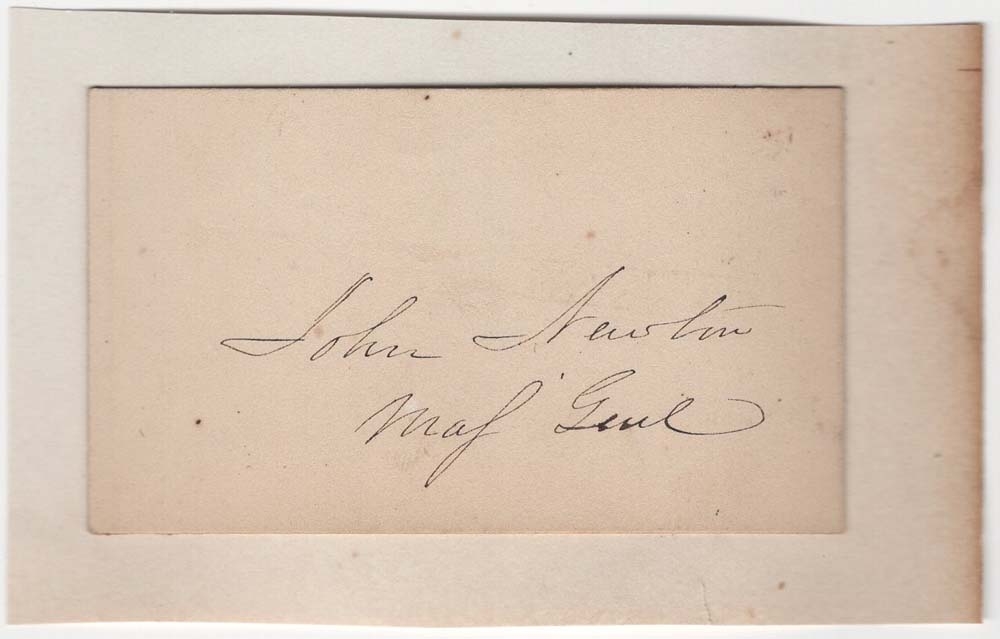 John Newton
Maj Genl